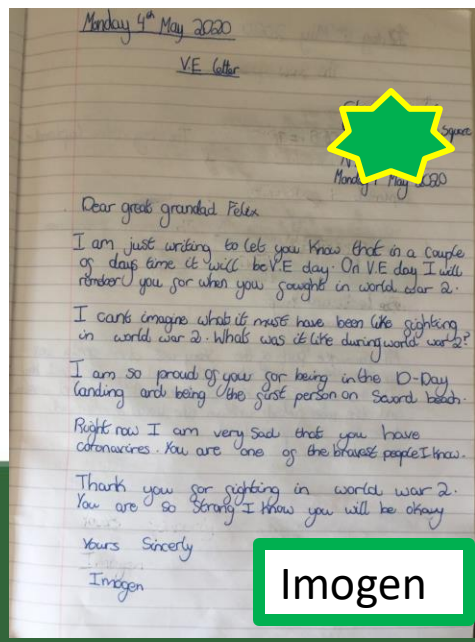 Monday 4th May 2020
V.E letter
Square
May 2020
Dear great grandad Felex
I am just writing to let you know that in a couple
of days time it will be V.E day. On V.E day I will
you for when you fought in world war 2.
I cant imagine what it must have been like fighting
in world war 2. What was it like during world war 2?
I am so proud of you for being in the D-Day
landing and being the first person on Sword beach.
Right now I am very sad that you have
coronavires. You are one of the bravest people I know.
Thank you for fighting in world war 2.
You are so strong I know you will be okay
Yours Sincerly
Imogen
Imogen